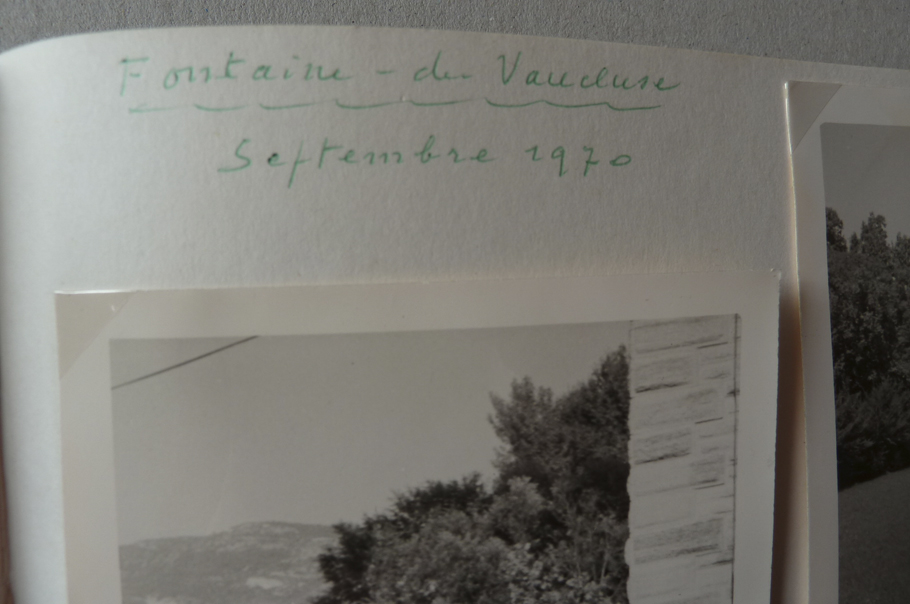 Fontaine-du Vaucluse
Septembre 1970